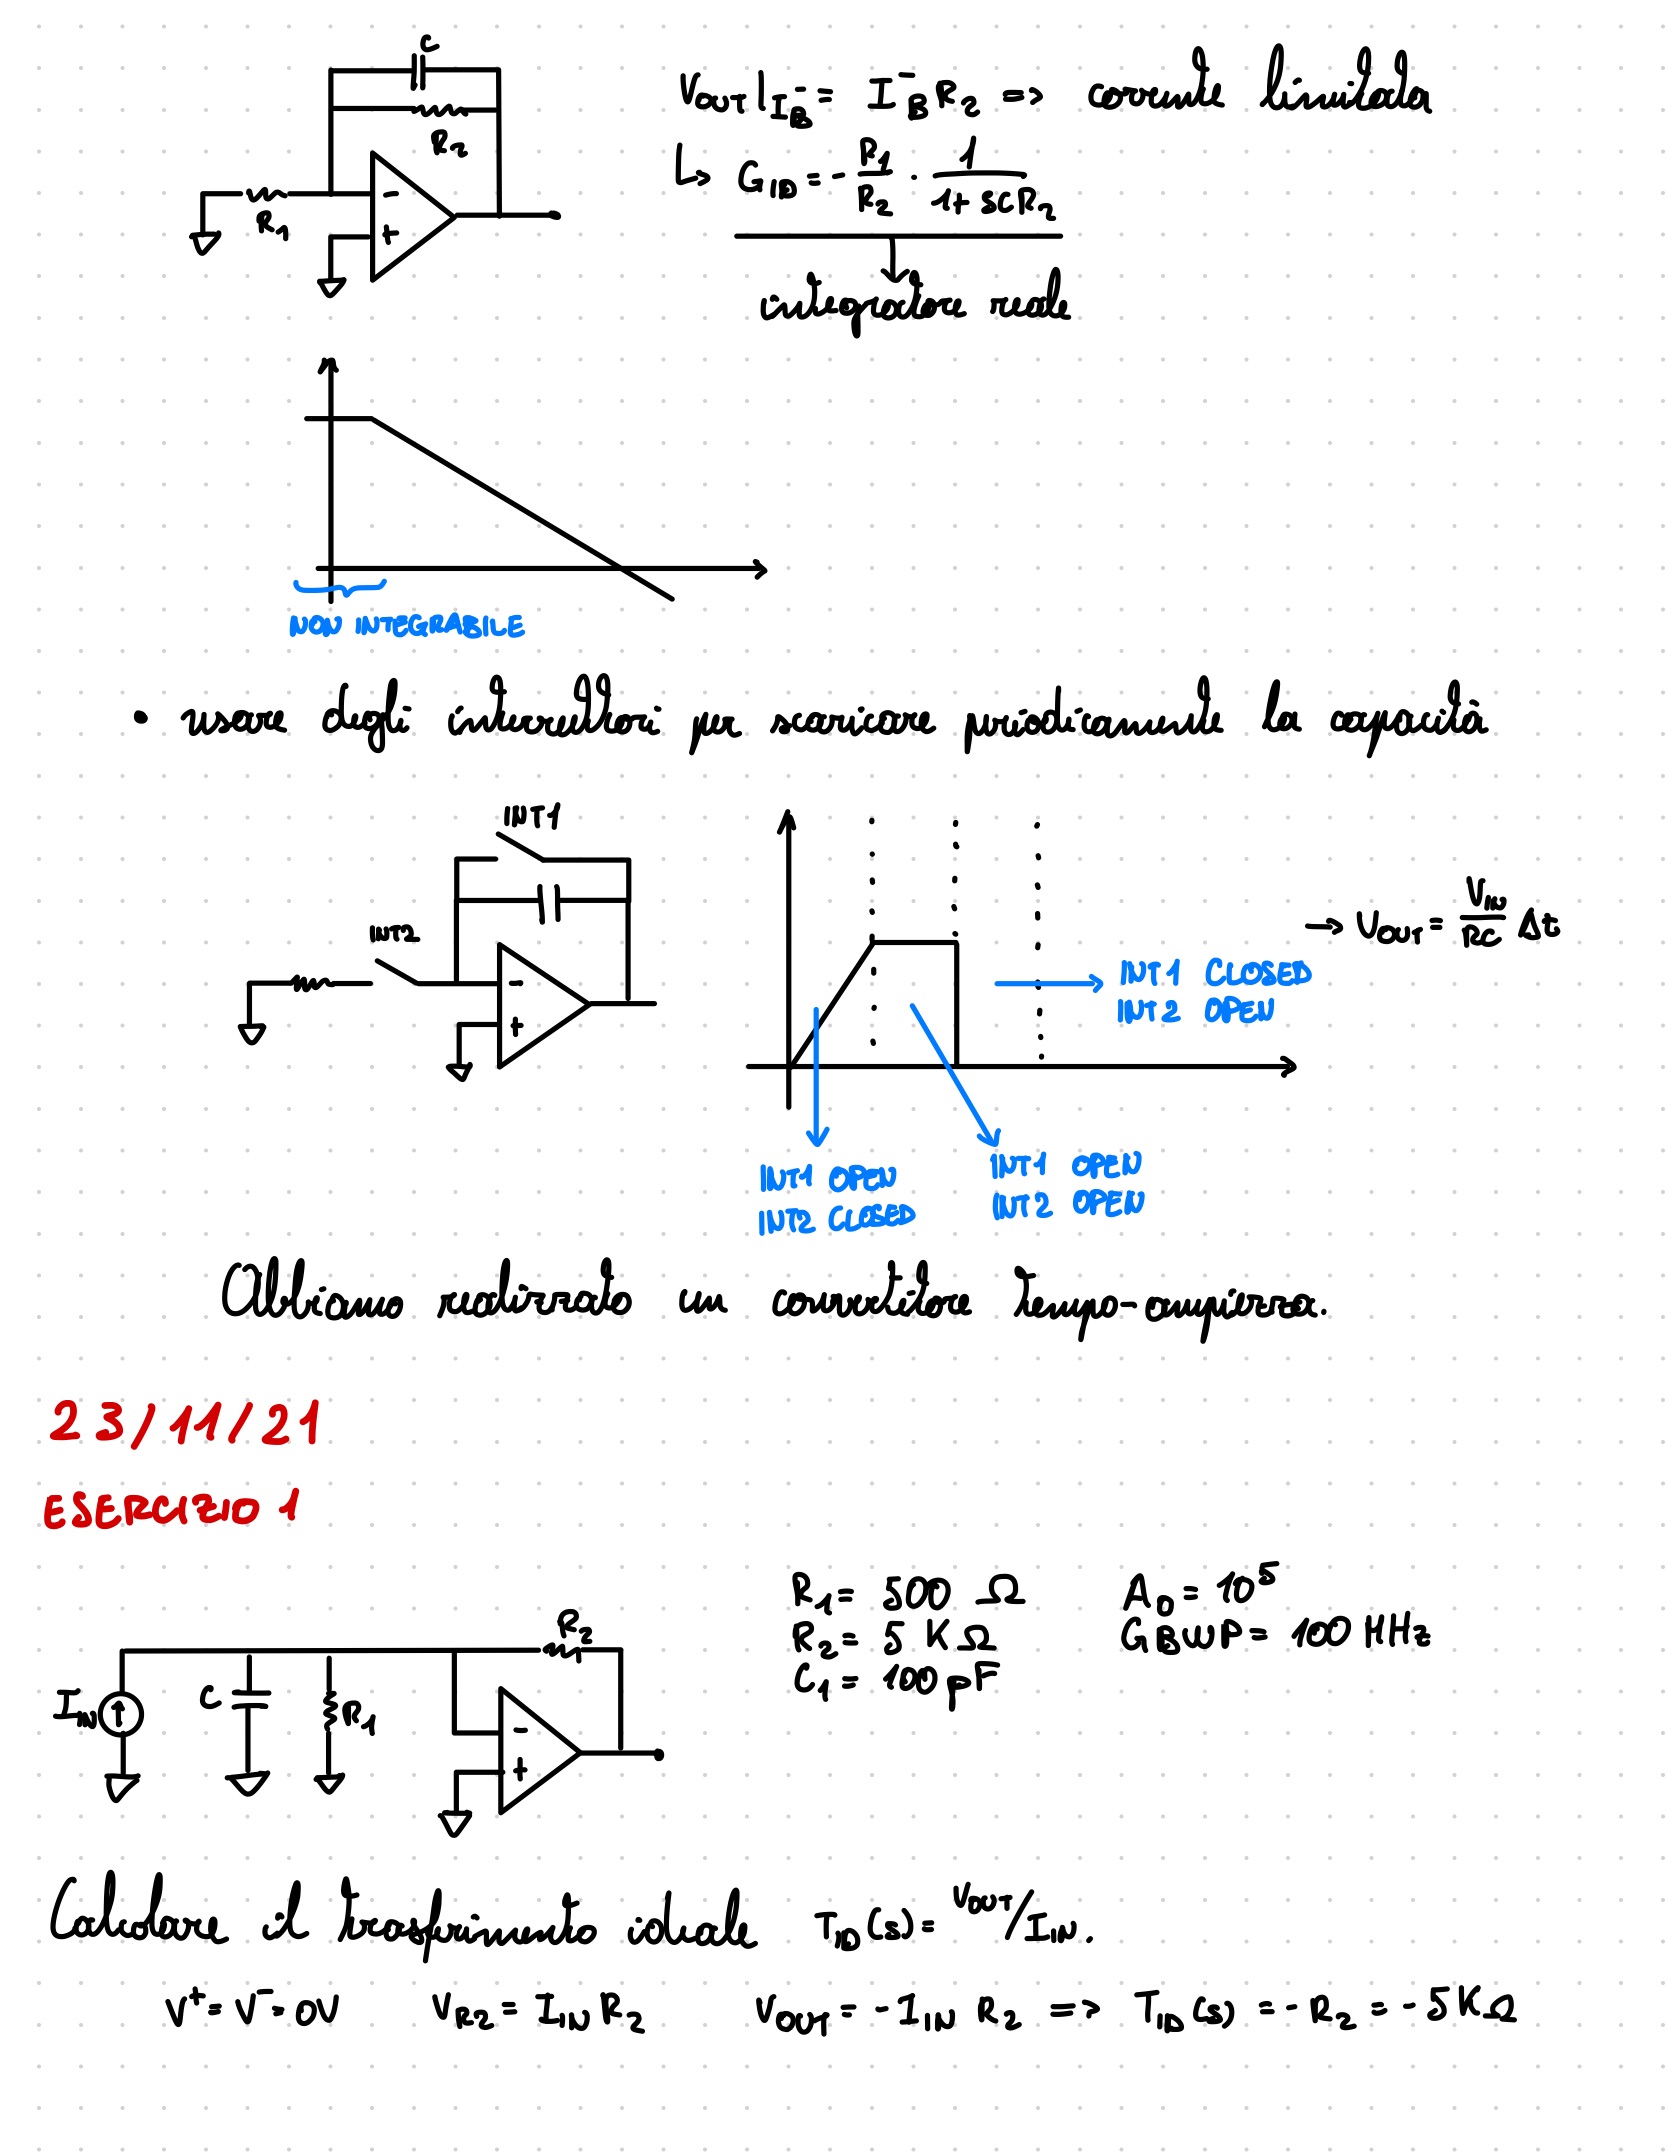 C
R₂
R₁
-
+
V_OUT|I_B⁻ = I_B⁻ R₂ => corrente limitata
↳ G_ID = - R₁/R₂ · 1/(1+SCR₂)
integratore reale
NON INTEGRABILE
• usare degli interruttori per scaricare periodicamente la capacità
INT1
INT2
-
+
→ V_OUT = V_IN/RC Δt
INT1 CLOSED
INT2 OPEN
INT1 OPEN
INT2 CLOSED
INT1 OPEN
INT2 OPEN
Abbiamo realizzato un convertitore tempo-ampiezza.
23/11/21
ESERCIZIO 1
R₁ = 500 Ω
R₂ = 5 KΩ
C₁ = 100 pF
A₀ = 10⁵
GBWP = 100 MHz
R₂
I_IN
C
R₁
-
+
Calcolare il trasferimento ideale T_ID(s) = V_OUT/I_IN.
V⁺ = V⁻ = 0V V_R2 = I_IN R₂ V_OUT = - I_IN R₂ => T_ID(s) = - R₂ = - 5 KΩ